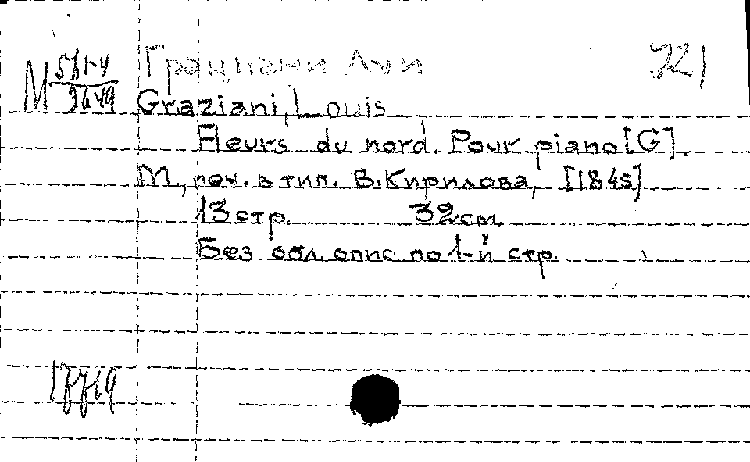 Грациани Луи
М
Graziani, Louis
Fleurs du nord. Pour piano [G].
М., печ. в тип. В. Кирилова, [1845]
13 стр. 32 см.
Без обл. опис. по 1-й стр.